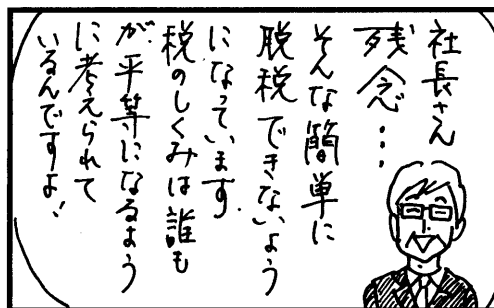 社長さん
残念…
そんな簡単に
脱税できないよう
になっています
税のしくみは誰も
が平等になるよう
に考えられて
いるんですよ!